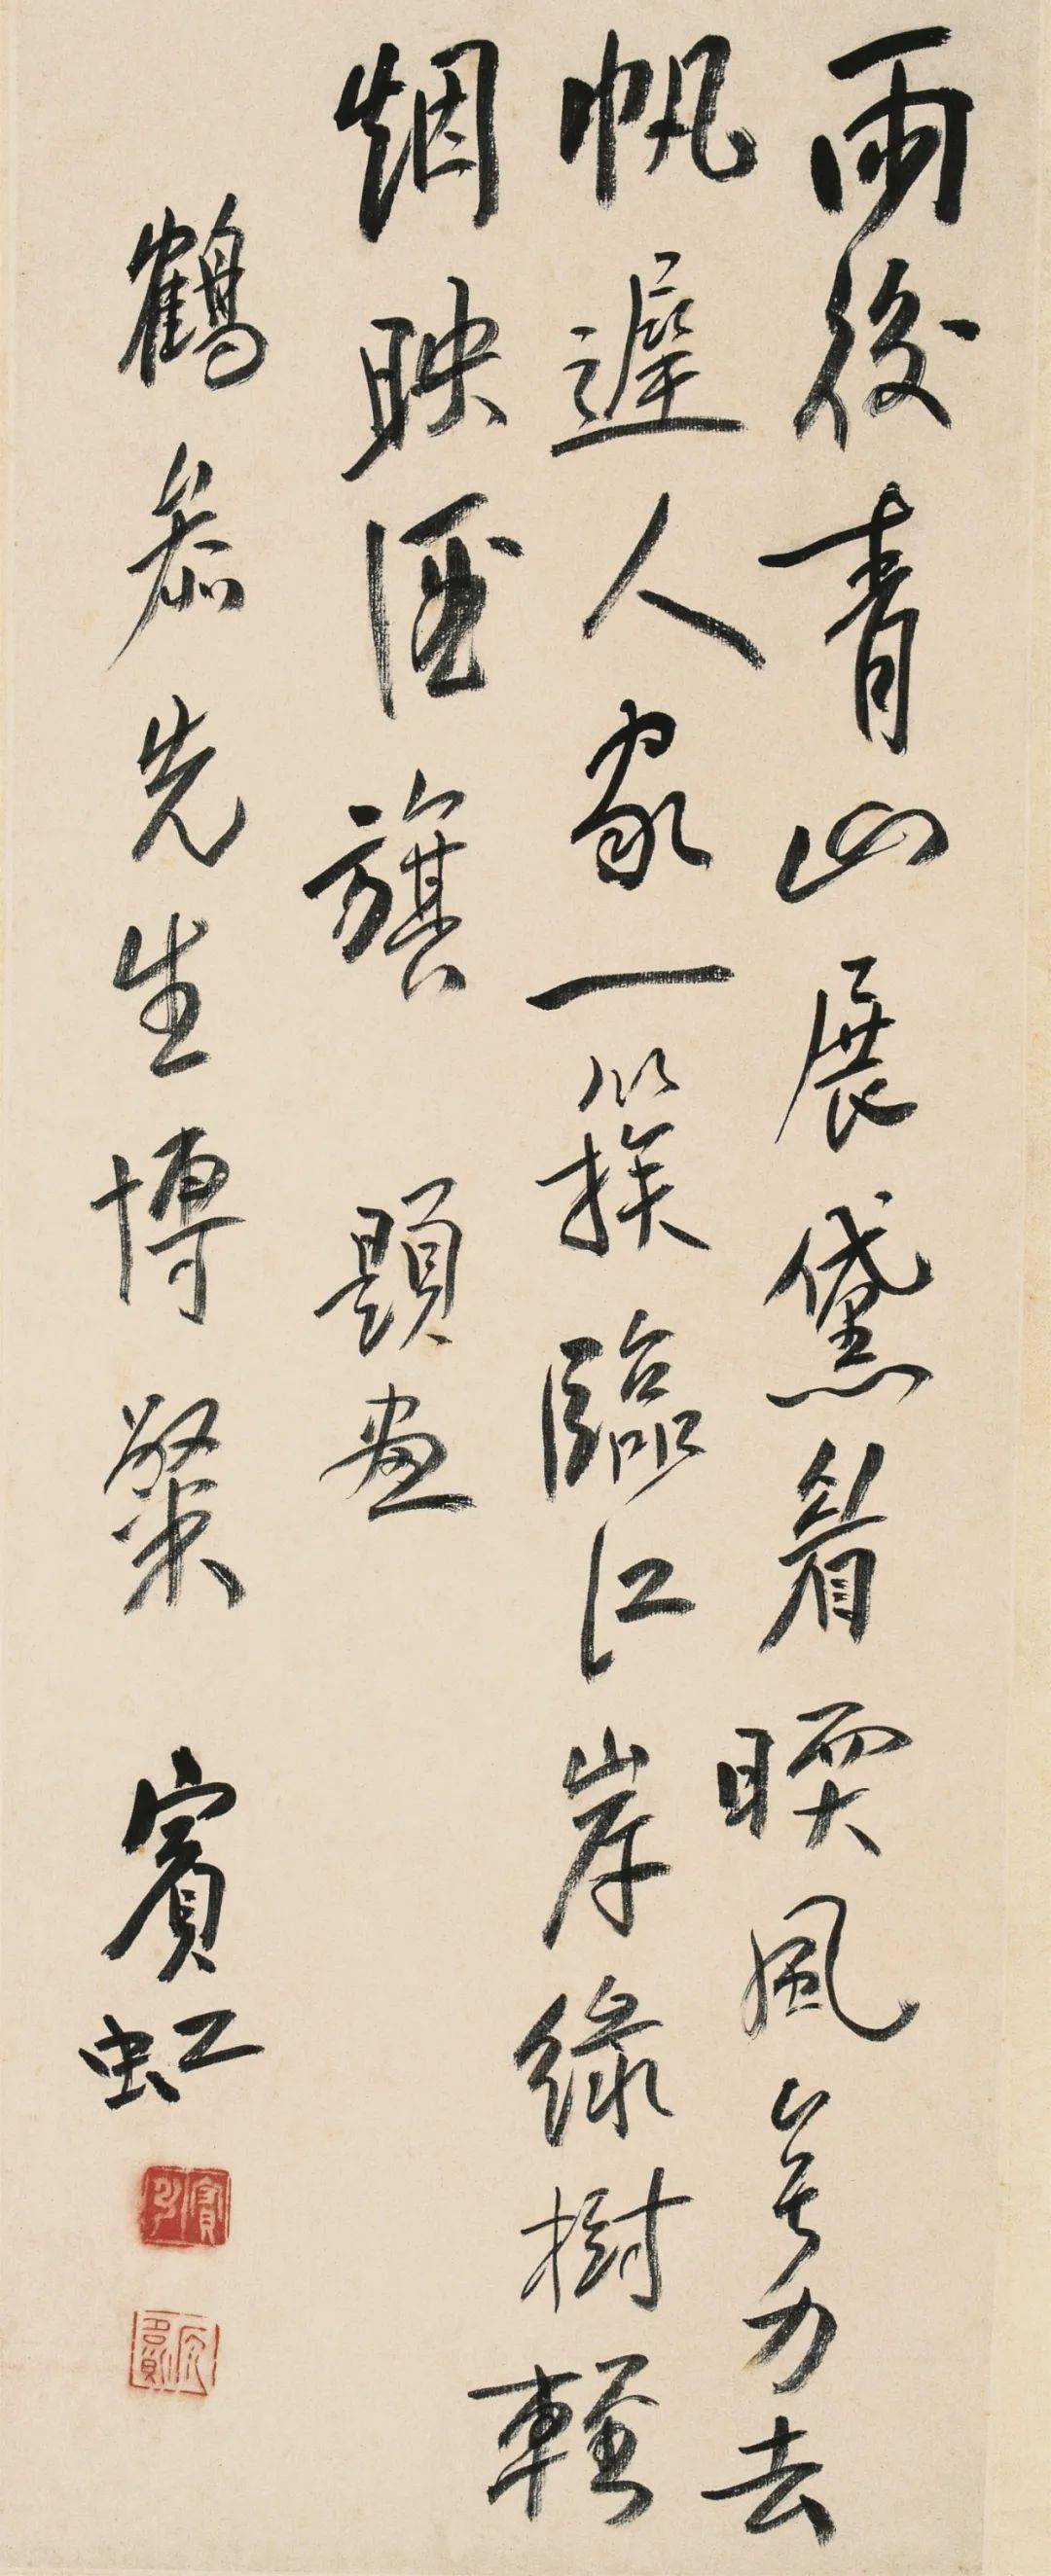 雨後青山展黛眉㬉風無力去
帆遲人家一簇臨江岸綠樹輕
烟映酒旗 題畫
鶴先生博粲 賓虹